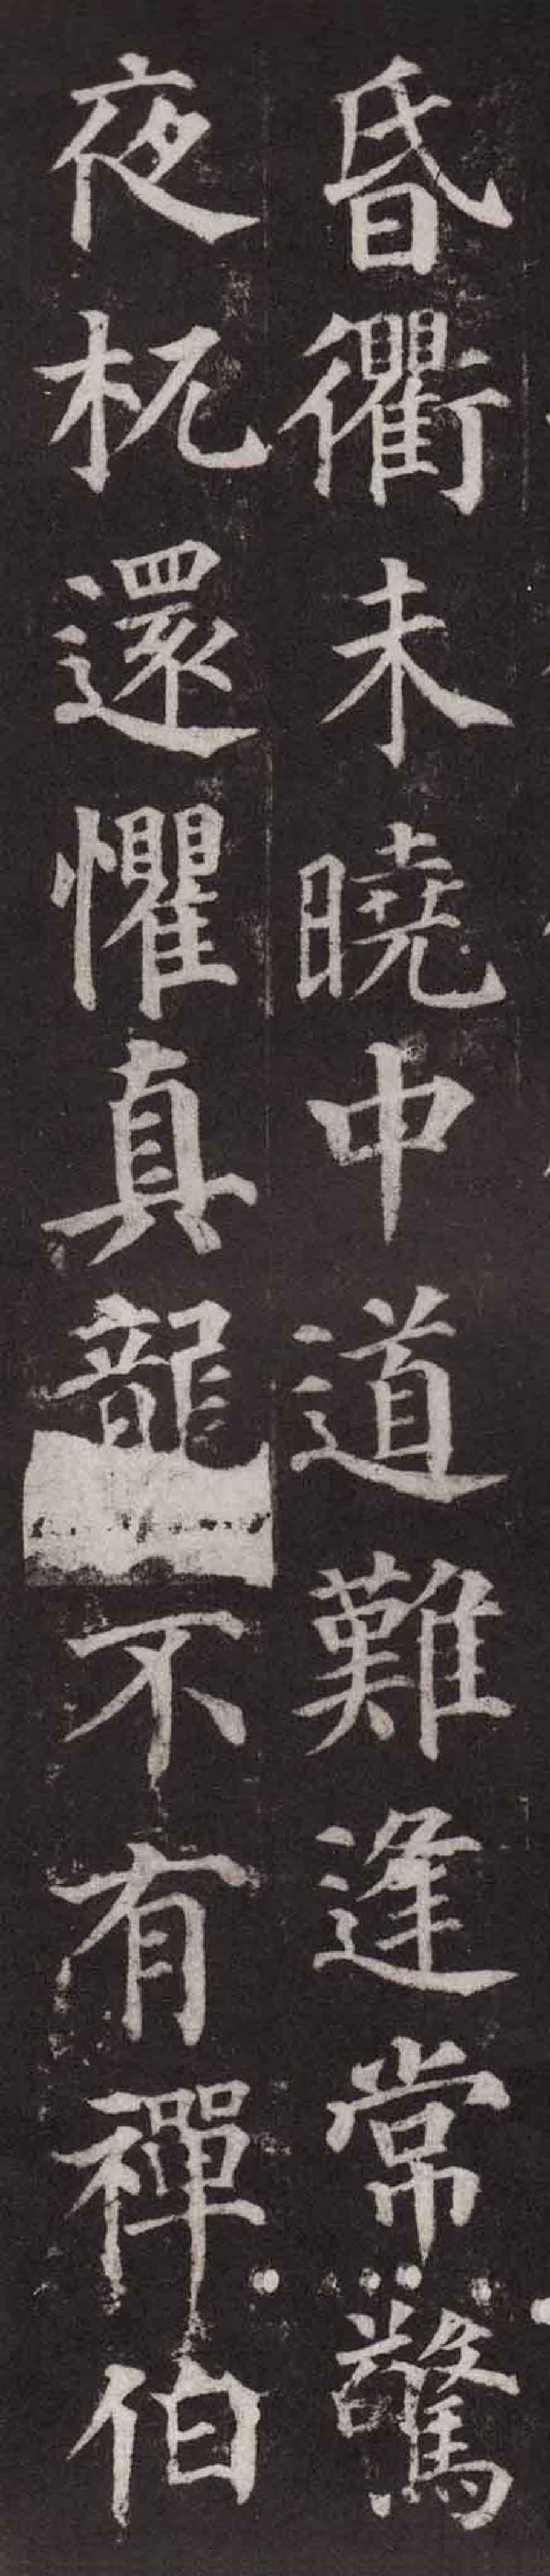 昏衢未曉中道難逢常驚
夜杌還懼真龍不有禪伯